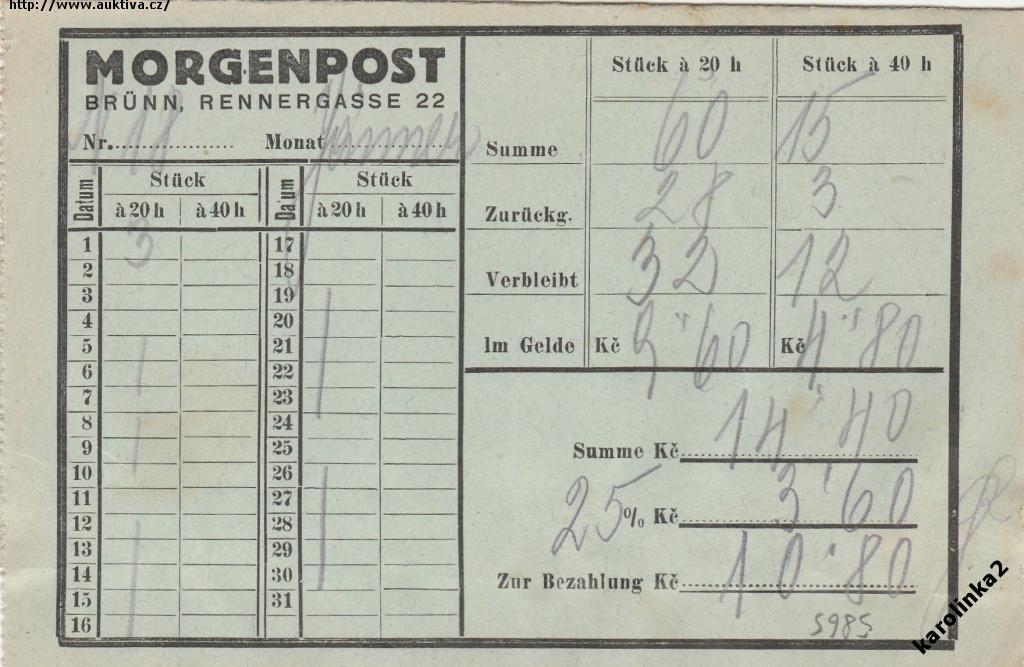 http://www.auktiva.cz/
MORGENPOST
BRÜNN, RENNERGASSE 22
Nr. 18 Monat Jänner
Datum Stück Datum Stück
à 20 h à 40 h à 20 h à 40 h
1 3 17
2 18
3 19
4 20
5 21
6 22
7 23
8 24
9 25
10 26
11 27
12 28
13 29
14 30
15 31
16
Stück à 20 h Stück à 40 h
Summe 60 15
Zurückg. 28 3
Verbleibt 32 12
Im Gelde Kč 9"60 Kč 4"80
Summe Kč 14'40
25 % Kč 3'60
Zur Bezahlung Kč 10'80
5985
karolinka2